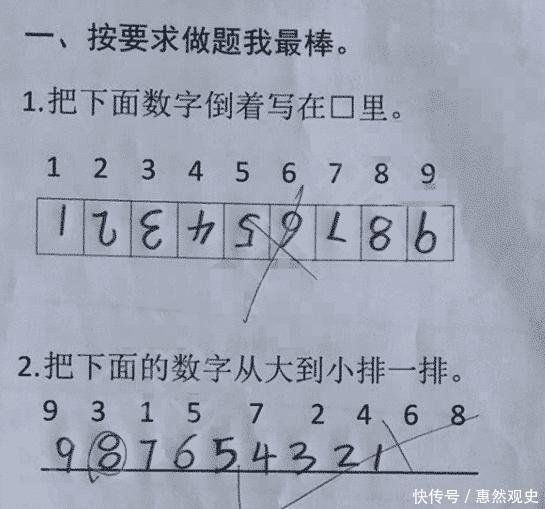 一、按要求做题我最棒。
1.把下面数字倒着写在□里。
1 2 3 4 5 6 7 8 9
1 2 3 4 5 6 7 8 9
2.把下面的数字从大到小排一排。
9 3 1 5 7 2 4 6 8
9 8 7 6 5 4 3 2 1
快传号/惠然观史